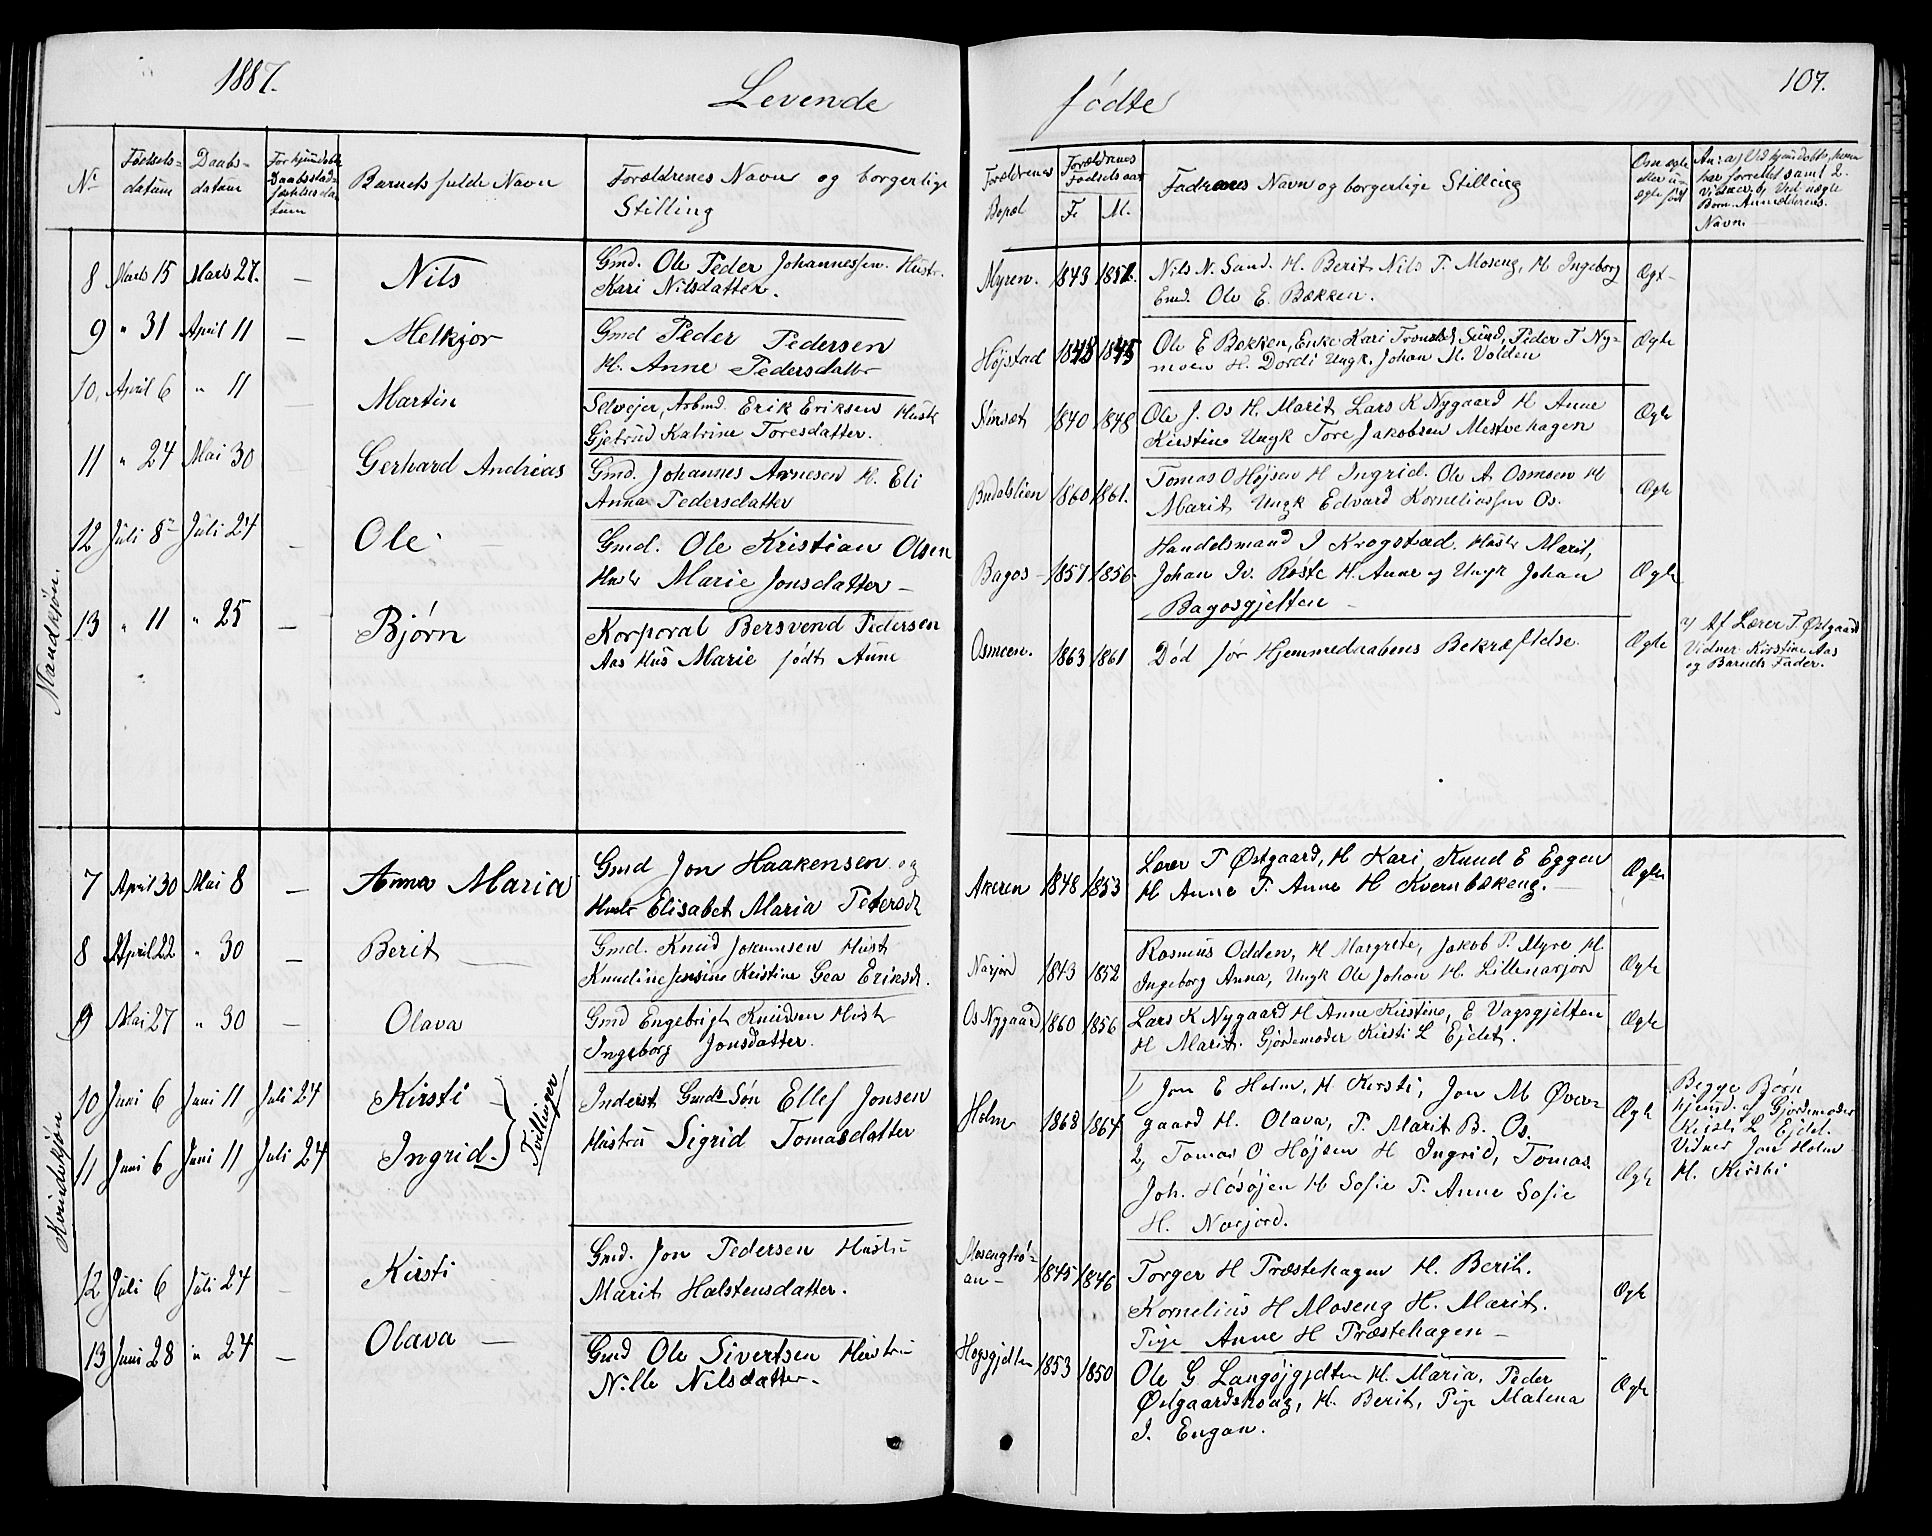 1887.
Levende
fødte
107.
No
Fødsels=
datum
Daabs=
datum
Daabsstad=
fæstelsesda
tum
Barnets fulde Navn
Forældrenes Navn og borgerlige
Stilling
Forældrenes
Bopæl
Forældrenes
Fødselsaar
F. M.
Faddrenes Navn og borgerlige Stilling
Om ægte
eller u=
ægte født
Navn.
Mandkjøn.
8 Marts 15 Marts 27. — Nils
Gmd. Ole Peder Johannessen. Hustr.
Kari Nilsdatter.
Myren. 1843 1852.
Nils N. Sund. H. Berit, Nils P. Moseng, H Ingeborg
Emd. Ole E. Bækken.
Ægt-
9 " 31 April 11 — Melkjor
Gmd Peder Pedersen
H. Anne Pedersdatter
Højstad 1848 1845
Ole E Bækken, Enke Kari Tronsdst Sund, Peder T Ny-
moen H. Dordi Ungk. Johan M. Volden
Ægte
10. April 6 " 11 Martin
Selvejer, Arbmd. Erik Eriksen Hustr
Gjetrud Katrine Toresdatter.
1840 1848
Ole J. Os H. Marit, Lars K Nygaard H Anne
Kirstine Ungk Tore Jakobsen Mestvehagen
Ægte
11 " 24 Mai 30 Gerhard Andreas
Gmd. Johannes Arnesen H. Eli
Anna Pedersdatter
Budalslien 1860 1861.
Tomas O Højsen H Ingrid. Ole A Osmoen H
Marit Ungk Edvard Korneliussen Os.
Ægte
12 Juli 8 Juli 24 — Ole
Gmd. Ole Kristian Olsen
Hustr Marie Jonsdatter —
Bagos 1857 1856.
Handelsmand I Krogstad. Hustr Marit,
Johan Iv. Røste H. Anne og Ungk Johan
Bagosgjelten —
Ægte
13 " 11 " 25 — Bjørn
Korporal Bersvend Pedersen
Aas Hus Marie født Aune
Osmoen. 1863 1861
Død før Hjemmedaabens Bekræftelse.
Ægte
a) Af Lærer P Østgaard
Vidner Kirstine Aas
og Barnets Fader.
Kvindekjøn
7 April 30 Mai 8 — Anna Maria
Gmd Jon Haakensen og
Hustr Elisabet Maria Pedersdt
Akeren 1848 1853
Lærer P Østgaard, H Kari, Knud E Eggen
H Anne P. Anne H Kvernbækeng. —
Ægte
8 April 22 " 30 — Berit —
Gmd. Knud Johannesen Hustr
Knudline Jensine Kristine Gea Eriksdt.
Narjord 1843 1852
Rasmus Odden, H Margrete, Jakob P. Myre H.
Ingeborg Anna, Ungk Ole Johan H. Lillenarjord
Ægte
9 Mai 27 " 30 — Olava
Gmd Engebrigt Knudsen Hustr
Ingeborg Jonsdatter.
Os Nygaard 1860 1856
Lars K Nygaard H Anne Kirstine, E Vagsgjelten
H Marit. Gjordemoder Kirsti L Ejdet.
Ægte
10 Juni 6 Juni 11 Juli 24 Kirsti
Inderst Gmds Søn Ellef Jonsen
Hustru Sigrid Tomasdatter
Tvilinger
Holm 1868 1864
1) Jon E Holm, H. Kirsti, Jon M Øver=
gaard H. Olava, P. Marit B. Os.
Ægte
Begge Børn
hjemd. af Gjordemoder
Kirsti L Ejdet.
Vidner Jon Holm
H. Kirsti
11 Juni 6 Juni 11 Juli 24 Ingrid.
2, Tomas O Højsen H Ingrid, Tomas
Joh. Høsøjen H Sofie P. Anne Sofie
H. Narjord.
Ægte
12 Juli 6 Juli 24 — Kirsti
Gmd. Jon Pedersen Hustru
Marit Halstensdatter.
Mosengtrø=
an— 1845 1846
Torger H Præstehagen H. Berit.
Kornelius H Moseng H. Marit.
Pige Anne H Præstehagen —
Ægte
13 Juni 28 " 24 — Olava —
Gmd Ole Sivertsen Hustru
Nille Nilsdatter.
Høgsgjelten 1853 1850
Ole G Langøjgjelten H. Maria, Peder
Østgaardskoug, H. Berit, Pige Malena
I. Engan.
Ægte